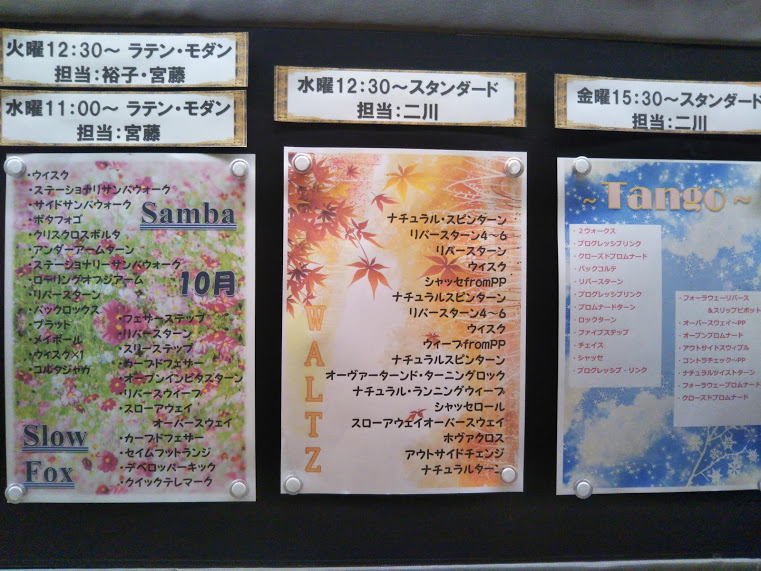 火曜12:30～ ラテン・モダン
担当:裕子・宮藤
水曜11:00～ ラテン・モダン
担当:宮藤
・ウイスク
・ステーショナリサンバウォーク
・サイドサンバウォーク
・ボタフォゴ
・クリスクロスボルタ
・アンダーアームターン
・ステーショナリーサンバウォーク
・ローリングオフジアーム
・リバースターン
・バックロックス
・プラット
・メイポール
・ウィスク×1
・コルタジャカ
Samba
10月
・フェザーステップ
・リバースターン
・スリーステップ
・カーブドフェザー
・オープンインピタスターン
・リバースウイーブ
・スローアウェイ
オーバースウェイ
・カーブドフェザー
・セイムフットランジ
・デベロッパーキック
・クイックテレマーク
Slow
Fox
水曜12:30～スタンダード
担当:二川
ナチュラル・スピンターン
リバースターン4～6
リバースターン
ウィスク
シャッセfromPP
ナチュラルスピンターン
リバースターン4～6
ウィスク
ウィーブfromPP
ナチュラルスピンターン
オーヴァーターンド・ターニングロック
ナチュラル・ランニングウイーブ
シャッセロール
スローアウェイオーバースウェイ
ホヴァクロス
アウトサイドチェンジ
ナチュラルターン
WALTZ
金曜15:30～スタンダード
担当:二川
～Tango～
・2ウォークス
・プログレッシブリンク
・クローズドプロムナード
・バックコルテ
・リバースターン
・プログレッシブリンク
・プロムナードターン
・ロックターン
・ファイブステップ
・チェイス
・シャッセ
・プログレッシブ・リンク
・フォーラウェーリバース
&スリップピボット
・オーバースウェイ～PP
・オープンプロムナード
・アウトサイドスウィブル
・コントラチェック～PP
・ナチュラルツイストターン
・フォーラウェープロムナード
・クローズドプロムナード